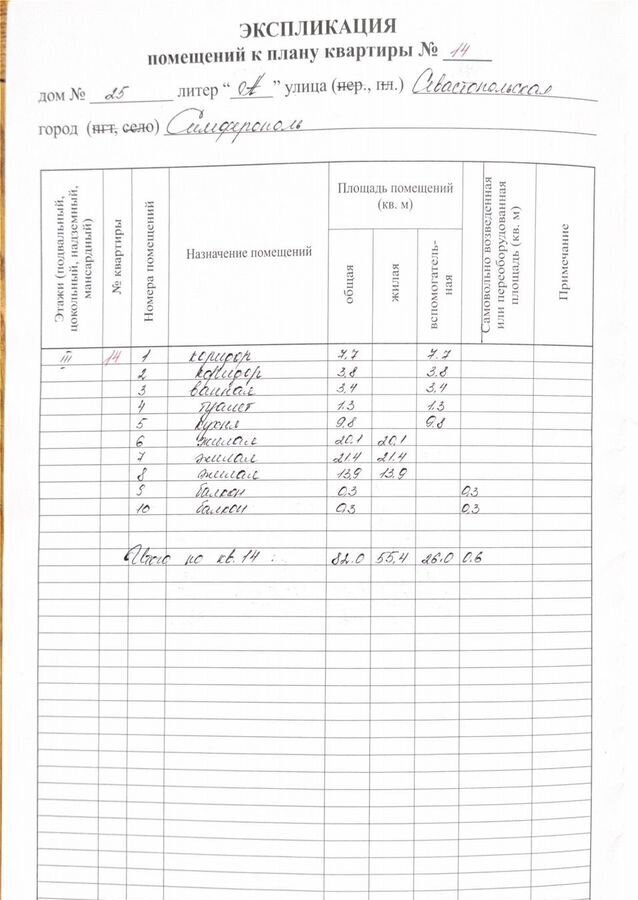 ЭКСПЛИКАЦИЯ
помещений к плану квартиры № 14
дом № 25 литер “А” улица (пер., пл.) Севастопольская
город (пгт, село) Симферополь
Этажи (подвальный, цокольный, надземный, мансардный)
№ квартиры
Номера помещений
Назначение помещений
Площадь помещений (кв. м)
общая
жилая
вспомогатель-ная
Самовольно возведенная или переоборудованная площадь (кв. м)
Примечание
III 14 1 коридор 7,7 7.7
2 коридор 3,8 3.8
3 ванная 3,4 3,4
4 туалет 1.3 1.3
5 кухня 9.8 9.8
6 жилая 20,1 20,1
7 жилая 21.4 21.4
8 жилая 13,9 13,9
9 балкон 0.3 0.3
10 балкон 0.3 0.3
Итого по кв. 14 : 82.0 55,4 26.0 0.6